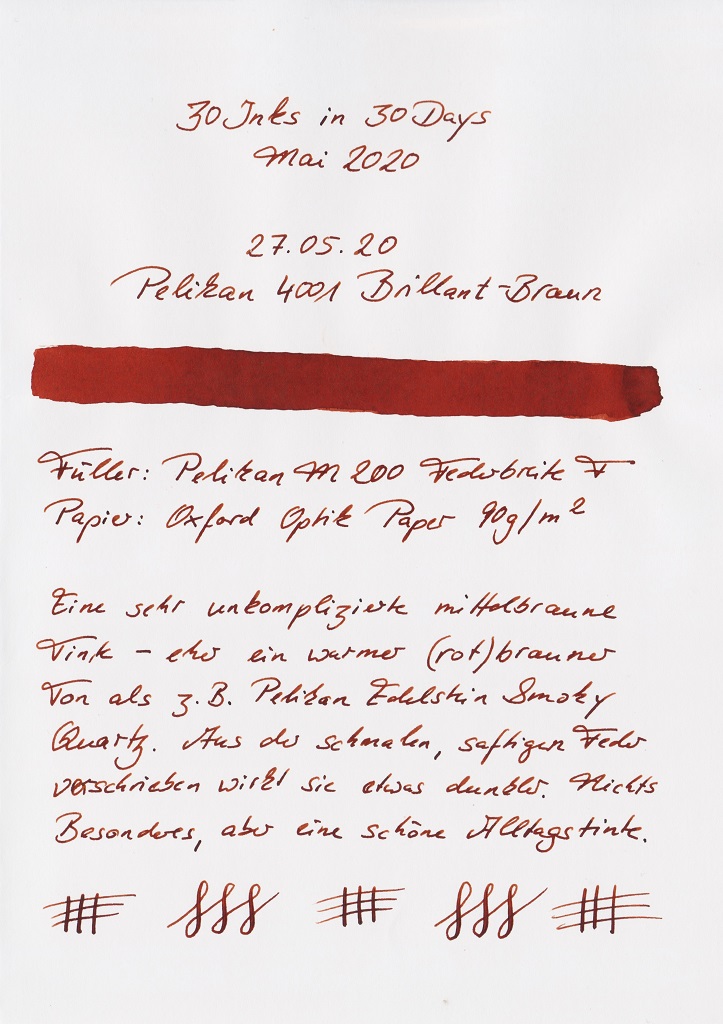 30 Inks in 30 Days
Mai 2020
27.05.20
Pelikan 4001 Brillant-Braun
Füller: Pelikan M 200 Federbreite F
Papier: Oxford Optik Paper 90g/m²
Eine sehr unkomplizierte mittelbraune
Tinte – eher ein warmer (rot)brauner
Ton als z.B. Pelikan Edelstein Smoky
Quartz. Aus der schmalen, saftigen Feder
verschrieben wirkt sie etwas dunkler. Nichts
Besonderes, aber eine schöne Alltagstinte.